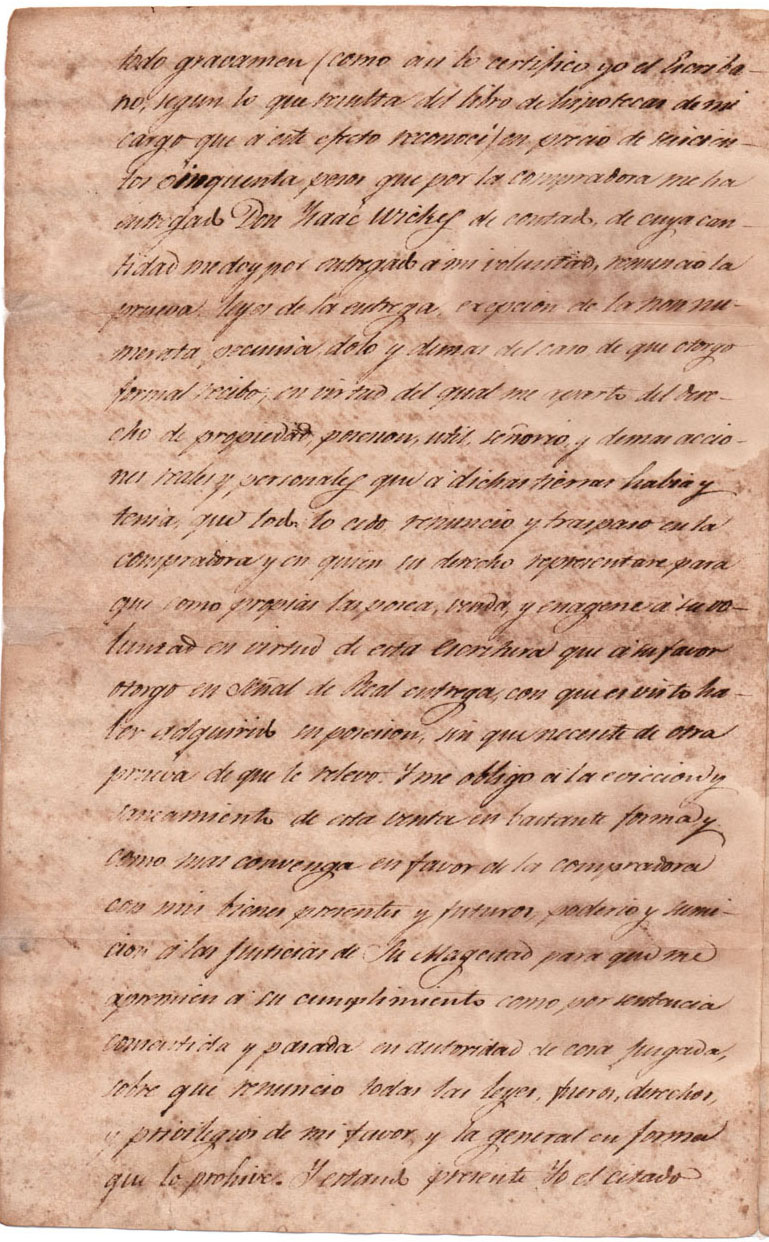 todo gravamen (como asi lo certifico yo el Escriba-
no, segun lo que resulta del libro de hipotecas de mi
cargo que á este efecto reconoci) en precio de seicien-
tos cinquenta pesos que por la compradora me ha
entregado Don Isaac Wickes de contado, de cuya can-
tidad me doy por entregado á mi voluntad, renuncio la
prueva, leyes de la entrega, excepcion de la non nu-
merata, pecunia dolo y demas del caso de que otorgo
formal recibo; en virtud del qual me aparto del dere-
cho de propiedad, posesion, util, señorio, y demas accio-
nes reales y personales que á dichas tierras habia y
tenia, que todo lo cedo, renuncio y traspaso en la
compradora y en quien su derecho representare para
que como propias las posea, venda, y enagene á su vo-
luntad en virtud de esta Escritura que á su favor
otorgo en señal de Real entrega, con que es visto ha-
ber adquirido su posesion, sin que necesite de otra
prueva de que le relevo. Y me obligo á la eviccion y
saneamiento de esta venta en bastante forma y
como mas convenga en favor de la compradora
con mis bienes presentes y futuros, poderio y sumi-
cion á las Justicias de Su Magestad para que me
apremien á su cumplimiento como por sentencia
consentida y pasada en autoridad de cosa Jusgada,
sobre que renuncio todas las leyes, fueros, derechos,
y privilegios de mi favor y la general en forma
que lo prohive. Y estando presente Yo el citado